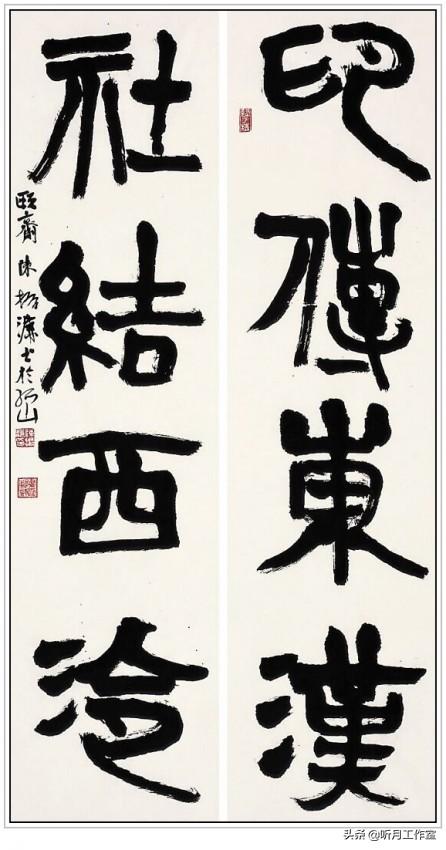 印傳東漢
社結西泠
頤齋陳振濂書於孤山
头条@听月工作室